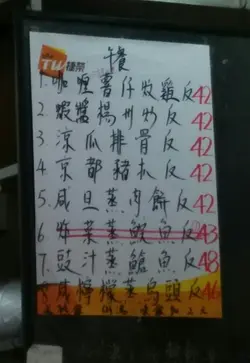 TW 捷榮
午餐
1. 咖喱薯仔炆雞反 42
2. 蝦醬楊州炒反 42
3. 涼瓜排骨反 42
4. 京都豬扒反 42
5. 咸旦蒸肉餅反 42
6 炸菜蒸鯇魚反 43
7. 豉汁蒸鱠魚反 48
8. 咸檸檬蒸烏頭反 46